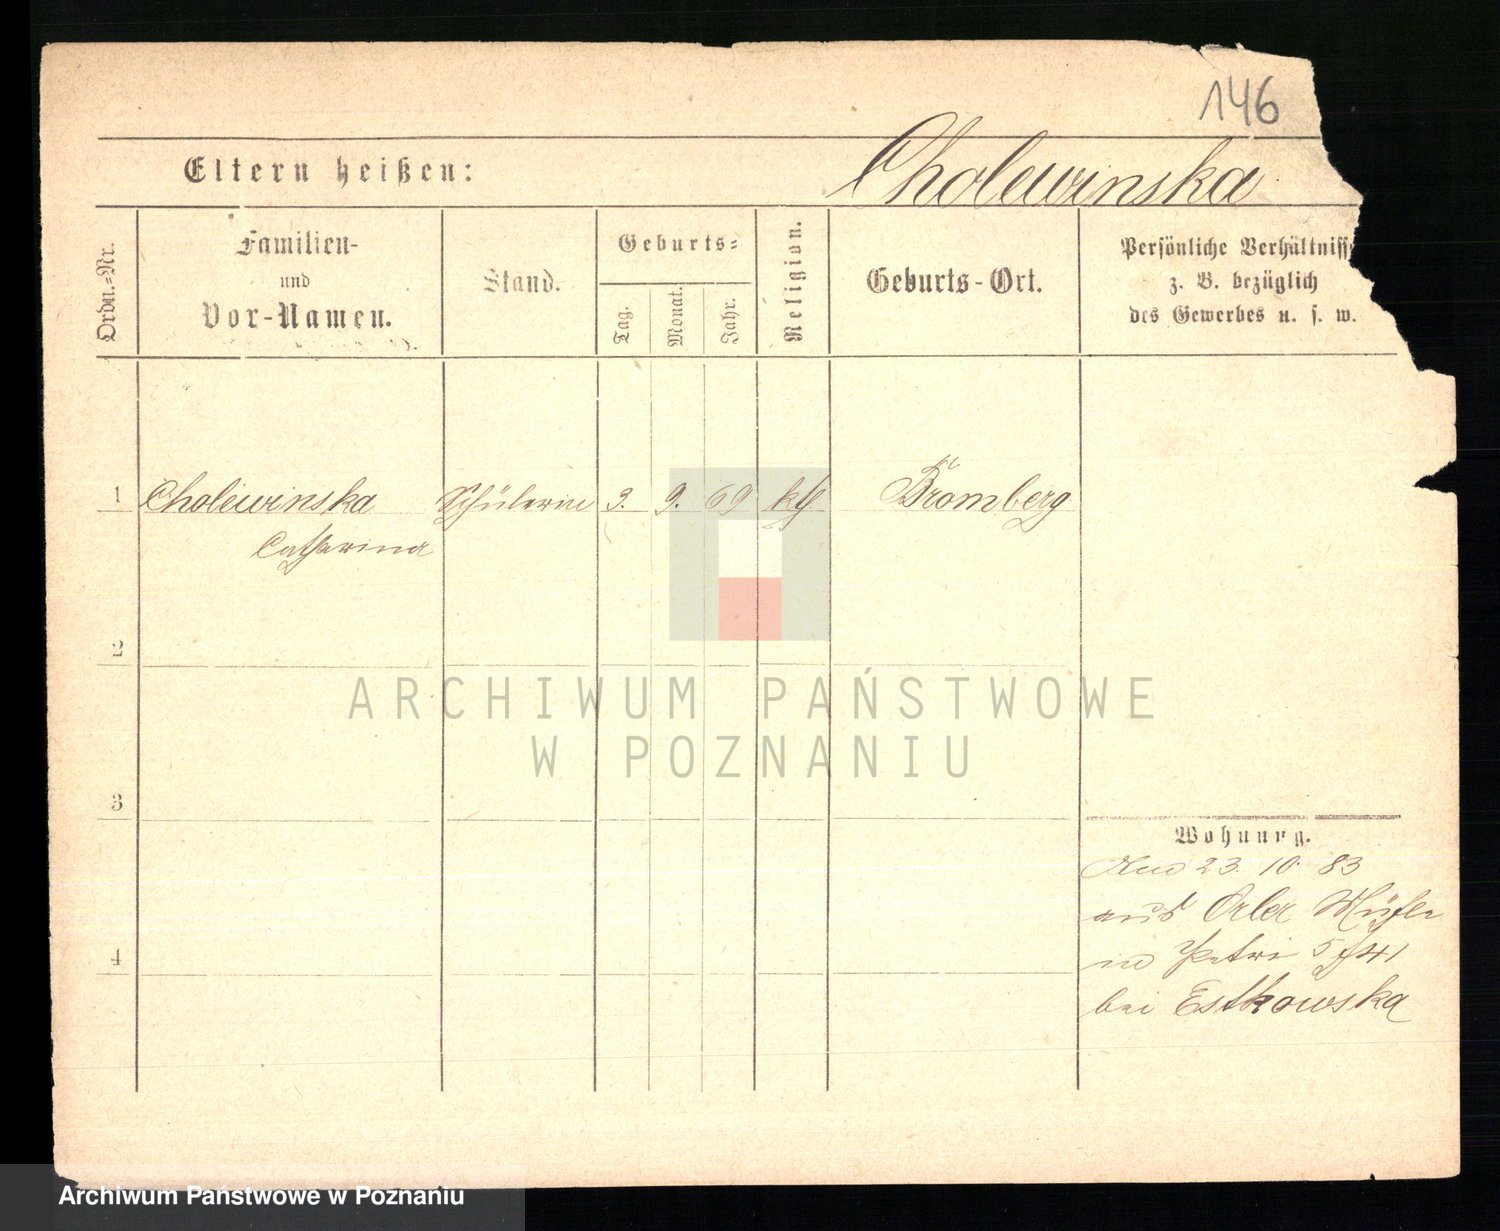 146
Eltern heißen:
Cholewinska
Ordn.-Nr.
Familien-
und
Vor-Namen.
Stand.
Geburts-
Tag.
Monat.
Jahr.
Religion.
Geburts-Ort.
Persönliche Verhältniss
z. B. bezüglich
des Gewerbes u. s. w.
1 Cholewinska Schülerin 3. 9. 69 kth Bromberg
Catharina
2
ARCHIWUM PAŃSTWOWE
W POZNANIU
3
4
Wohnung.
23. 10. 83
aus Mühle
in Petri 5
bei Estkowska
Archiwum Państwowe w Poznaniu